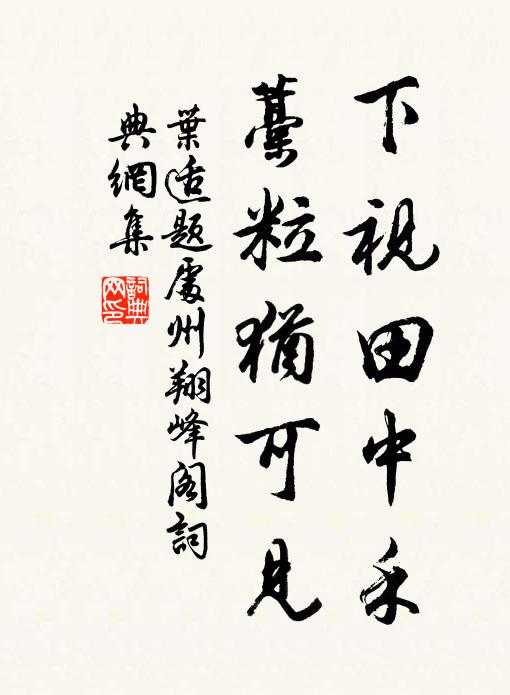 下視田中禾
藁粒猶可見
葉适題處州翔峰閣詞
典網集
詞典網印